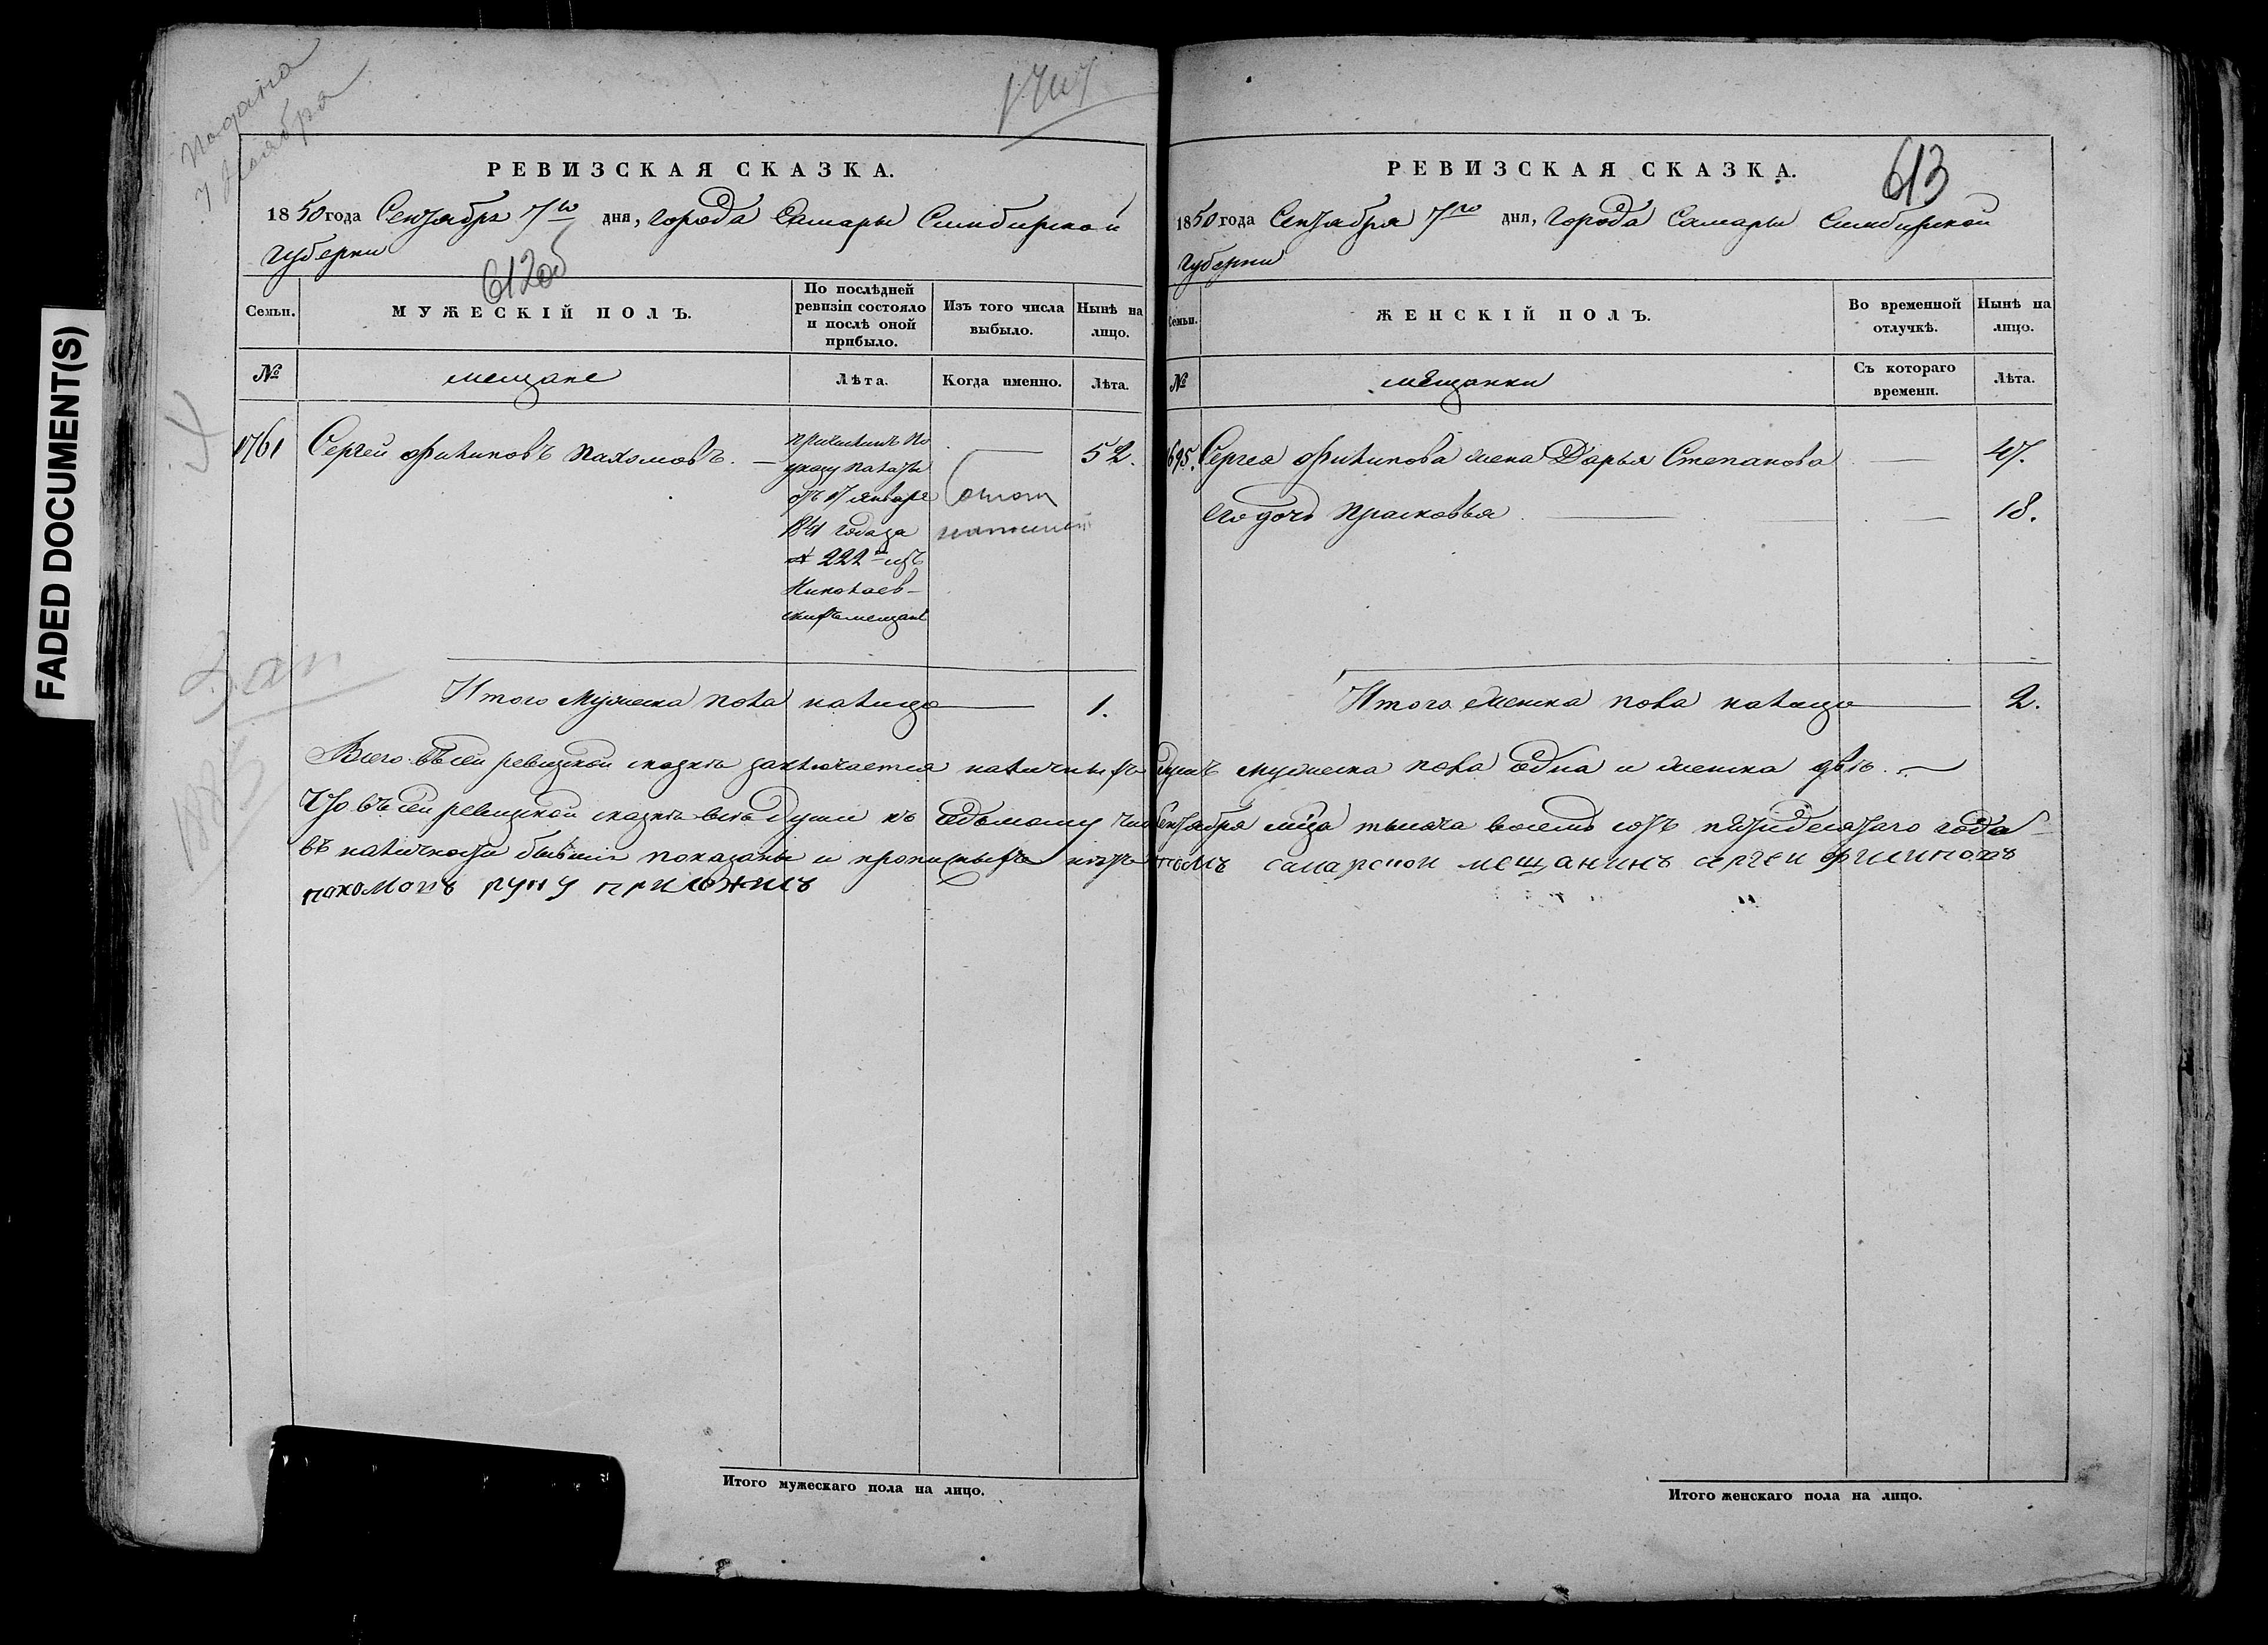 FADED DOCUMENT(S)
Подана
7 Ноября
РЕВИЗСКАЯ СКАЗКА.
1850 года Сентября 7го дня, города Самары Симбирской
губернии
612об
Семьи.
МУЖЕСКІЙ ПОЛЪ.
По послѣдней
ревизіи состояло
и послѣ оной
прибыло.
Изъ того числа
выбыло.
Нынѣ на
лицо.
№
мещане
Лѣта.
Когда именно.
Лѣта.
1761
Сергей Филиповъ Пахомовъ.
причисленъ по
указу палаты
отъ 17 января
1841 года за
№ 222м изъ
Николаев-
скихъ мещанъ
52.
Итого мужеска пола налицо 1.
Всего въ сей ревизской сказкѣ заключается наличныхъ
Что въ сей ревизской сказкѣ всѣ души къ седьмому
въ наличности бывшiя показаны и прописныхъ нѣтъ
пахомовъ руку приложилъ
Итого мужескаго пола на лицо.
613
РЕВИЗСКАЯ СКАЗКА.
1850 года Сентября 7го дня, города Самары Симбирской
губернии
Семьи.
ЖЕНСКІЙ ПОЛЪ.
Во временной
отлучкѣ.
Нынѣ на
лицо.
№
мещанки
Съ котораго
времени.
Лѣта.
695.
Сергея Филипова жена Дарья Степанова 47.
его дочь Прасковья 18.
Итого женска пола налицо 2.
душъ мужеска пола одна и женска двѣ.
Сентября мца тысяча восемь сотъ пятидесятаго года
самарской мещанинъ сергеи филиповъ
Итого женскаго пола на лицо.